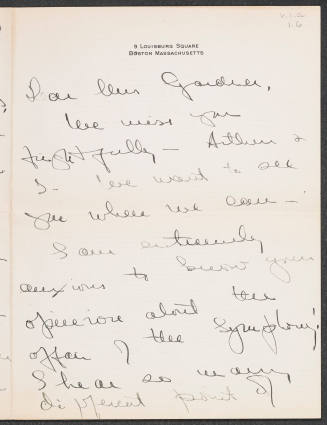 V.1.2
1.6
9 LOUISBURG SQUARE
BOSTON MASSACHUSETTS
Dear Mrs Gardner,
We miss you
frightfully — Arthur &
I - We want to see
you when we can —
I am extremely
anxious to know your
opinion about the
affair of the Symphony!
I hear so many
different points of